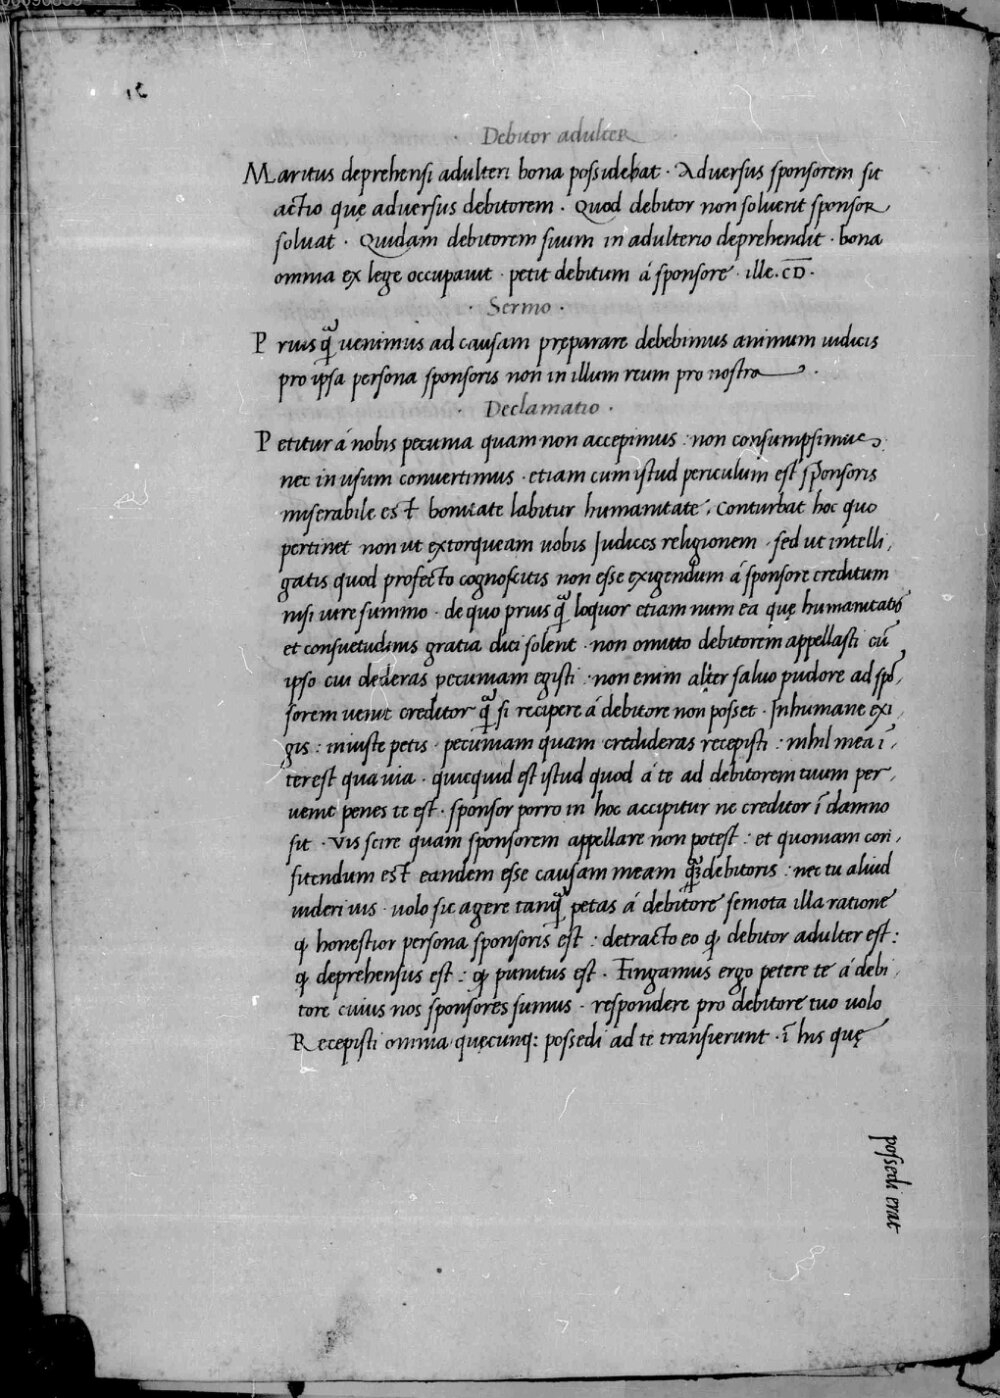 Debitor adulter
Maritus deprehensi adulteri bona possidebat · Adversus sponsorem sit
actio quę adversus debitorem · Quod debitor non soluerit sponsor
soluat · Quidam debitorem suum in adulterio deprehendit · bona
omnia ex lege occupauit · petit debitum á sponsore · ille · C̅D̅ ·
· Sermo ·
Prius q̃ venimus ad causam pręparare debebimus animum iudicis
pro ipsa persona sponsoris non in illum reum pro nostra ·
· Declamatio ·
Petitur á nobis pecunia quam non accepimus : non consumpsimus
nec in usum convertimus · etiam cum istud periculum est sponsoris
miserabile est bonitate labitur humanitate · conturbat hoc quo
pertinet non ut extorqueam uobis Iudices religionem · sed ut intelli,
gatis quod profecto cognoscitis non esse exigendum á sponsore creditum
nisi iure summo · de quo prius q̃ loquor etiam num ea quę humanitatis
et consuetudinis gratia dici solent · non omitto debitorem appellasti cũ
ipso cui dederas pecuniam egisti · non enim aliter saluo pudore ad spõ,
sorem uenit creditor q̃ si recipere á debitore non posset · Inhumane exi,
gis : iniuste petis · pecuniam quam credideras recepisti : nihil mea ĩ,
terest qua uia · quicquid est istud quod á te ad debitorem tuum per,
uenit penes te est · sponsor porro in hoc accipitur ne creditor ĩ damno
sit · Vis scire quam sponsorem appellare non potest : et quoniam con,
fitendum est eandem esse causam meam debitoris : nec tu aliud
uideri uis · uolo sic agere tanq̃ petas á debitore semota illa ratione
ꝙ honestior persona sponsoris est : detracto eo ꝙ debitor adulter est :
ꝙ deprehensus est : ꝙ punitus est · Fingamus ergo petere te á debi,
tore cuius nos sponsores sumus · respondere pro debitore tuo uolo
Recepisti omnia quęcunq: possedi ad te transierunt · ĩ his quę
possedi erat